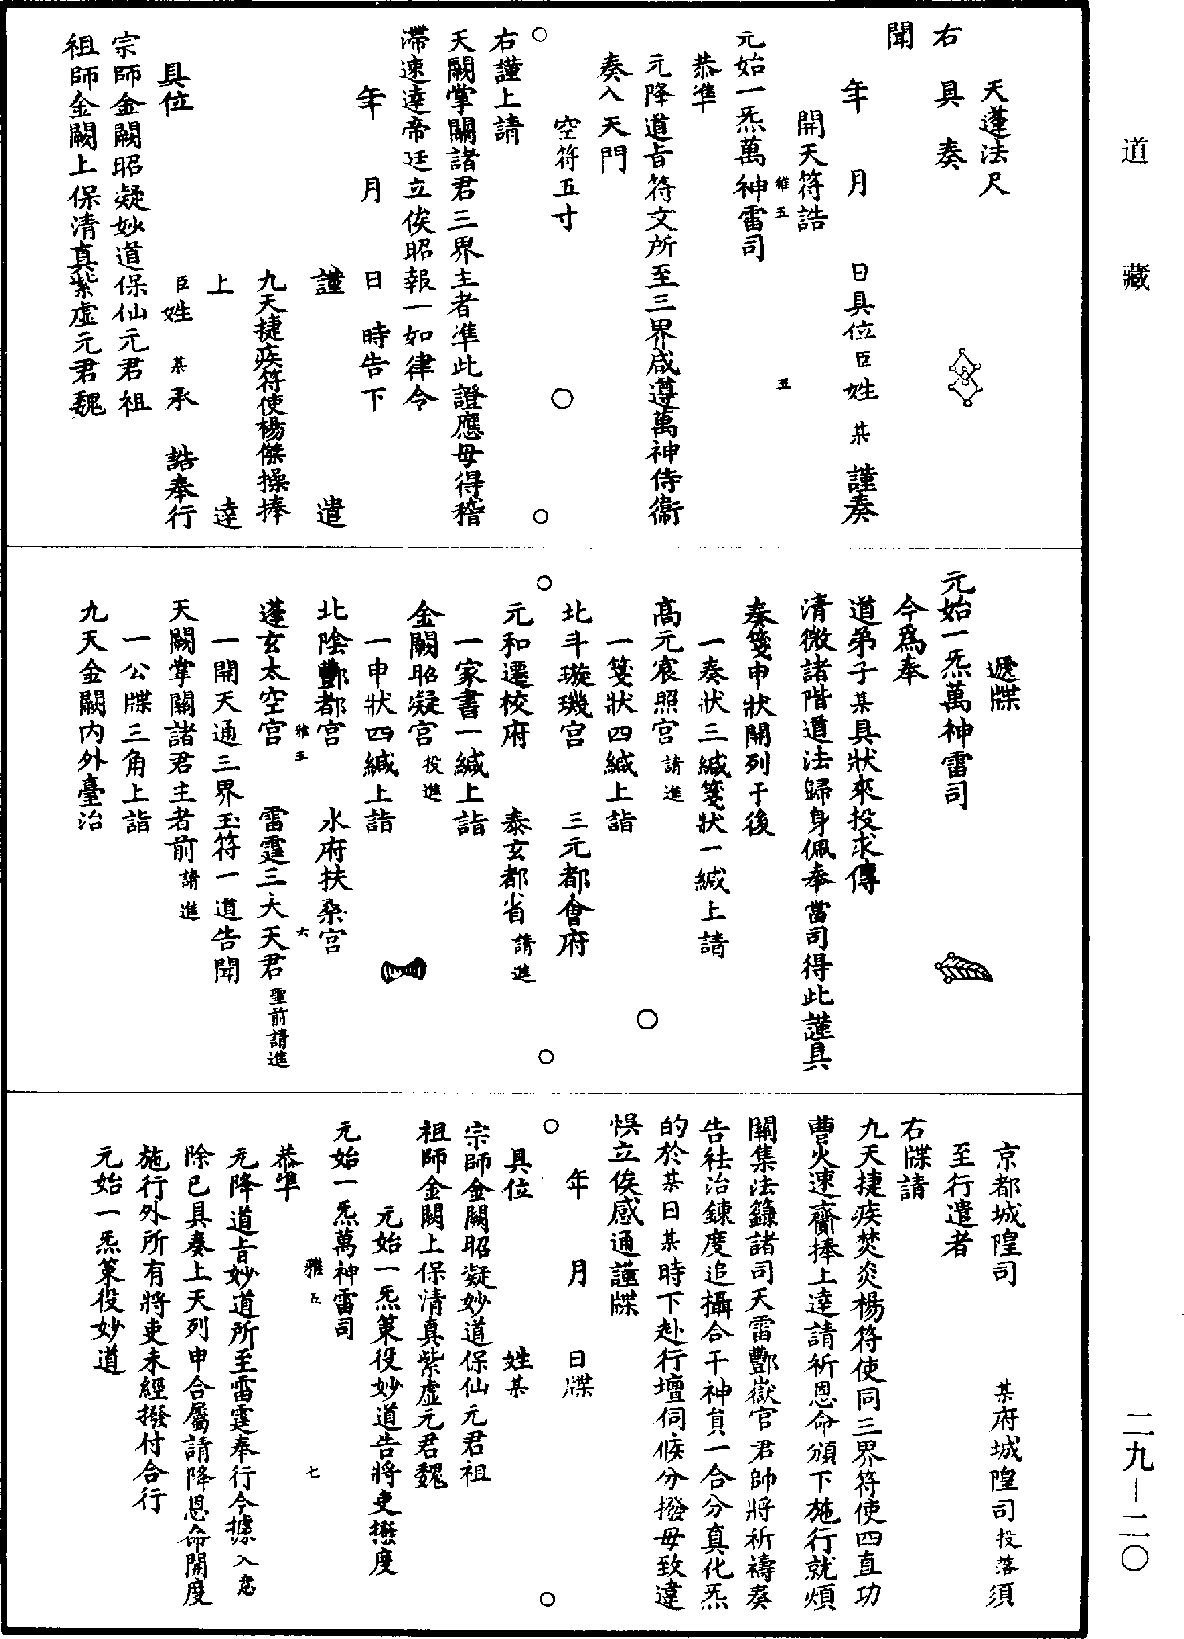 道藏
天蓬法尺
右具奏
聞
年　月　日具位臣姓某謹奏
開天符誥
雅五　五
元始一炁萬神雷司
恭準
元降道旨符文所至三界咸遵萬神侍衞
奏入天門
空符五寸
右謹上請
天闕掌關諸君三界主者準此證應毋得稽
滯速達帝廷立俟昭報一如律令
年　月　日　時告下
謹　遣
九天捷疾符使楊傑操捧
上　達
具位　臣姓某承　誥奉行
宗師金闕昭凝妙道保仙元君祖
祖師金闕上保清真紫虛元君魏
遞牒
元始一炁萬神雷司
今爲奉
道弟子某具狀來投求傳
清微諸階道法歸身佩奉當司得此謹具
奏箋申狀開列于後
一奏狀三緘箋狀一緘上請
高元宸照宮請進
一箋狀四緘上詣
北斗璇璣宮　三元都會府
元和遷校府　泰玄都省請進
一家書一緘上詣
金闕昭凝宮投進
一申狀四緘上詣
北陰酆都宮　水府扶桑宮
雅五　六
蓬玄太空宮　雷霆三大天君聖前請進
一開天通三界玉符一道告聞
天關掌關諸君主者前請進
一公牒三角上詣
九天金闕內外臺治
京都城隍司　某府城隍司投落須
至行遣者
右牒請
九天捷疾焚炎楊符使同三界符使四直功
曹火速齎捧上達請祈恩命頒下施行就煩
關集法籙諸司天雷酆嶽官君帥將祈禱奏
告祛治鍊度追攝合干神員一合分真化炁
的於某日某時下赴行壇伺候分撥毋致違
悞立俟感通謹牒
年　月　日牒
具位　姓某
宗師金闕昭凝妙道保仙元君祖
祖師金闕上保清真紫虛元君魏
元始一炁策役妙道告將吏攝度
元始一炁萬神雷司
雅五　七
恭準
元降道旨妙道所至雷霆奉行今據入意
除已具奏上天列申合屬請降恩命開度
施行外所有將吏未經撥付合行
元始一炁策役妙道
二九－二〇